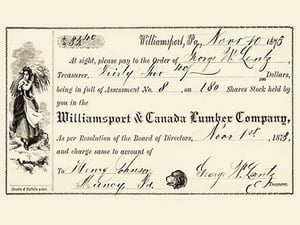 $32 40
Williamsport, Pa, Novr 10 1873
At sight, please pay to the Order of George W. Lentz
Treasurer, Thirty Two 40/100 Dollars,
being in full of Assessment No. 8 / on 180 Shares Stock held by
you in the
Williamsport & Canada Lumber Company,
As per Resolution of the Board of Directors, Novr 1st 1873.
and charge same to account of
To Henry Johnson
Muncy Pa.
George W. Lentz
Treasurer.